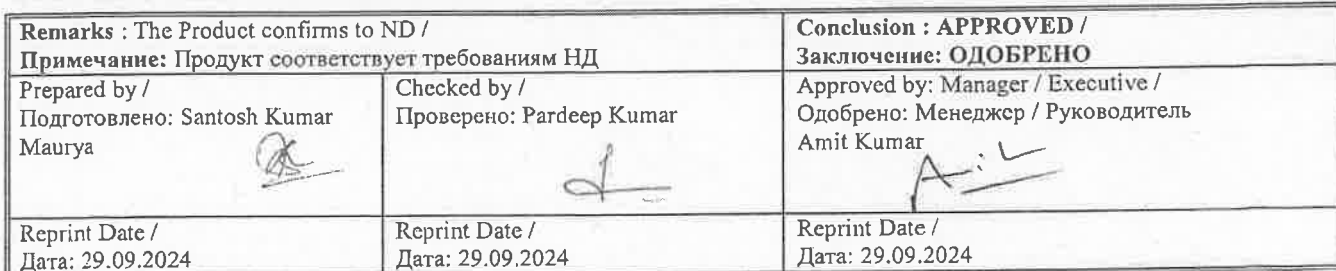 Remarks : The Product confirms to ND /
Примечание: Продукт соответствует требованиям НД
Conclusion : APPROVED /
Заключение: ОДОБРЕНО
Prepared by /
Подготовлено: Santosh Kumar
Maurya
Checked by /
Проверено: Pardeep Kumar
Approved by: Manager / Executive /
Одобрено: Менеджер / Руководитель
Amit Kumar
Reprint Date /
Дата: 29.09.2024
Reprint Date /
Дата: 29.09.2024
Reprint Date /
Дата: 29.09.2024